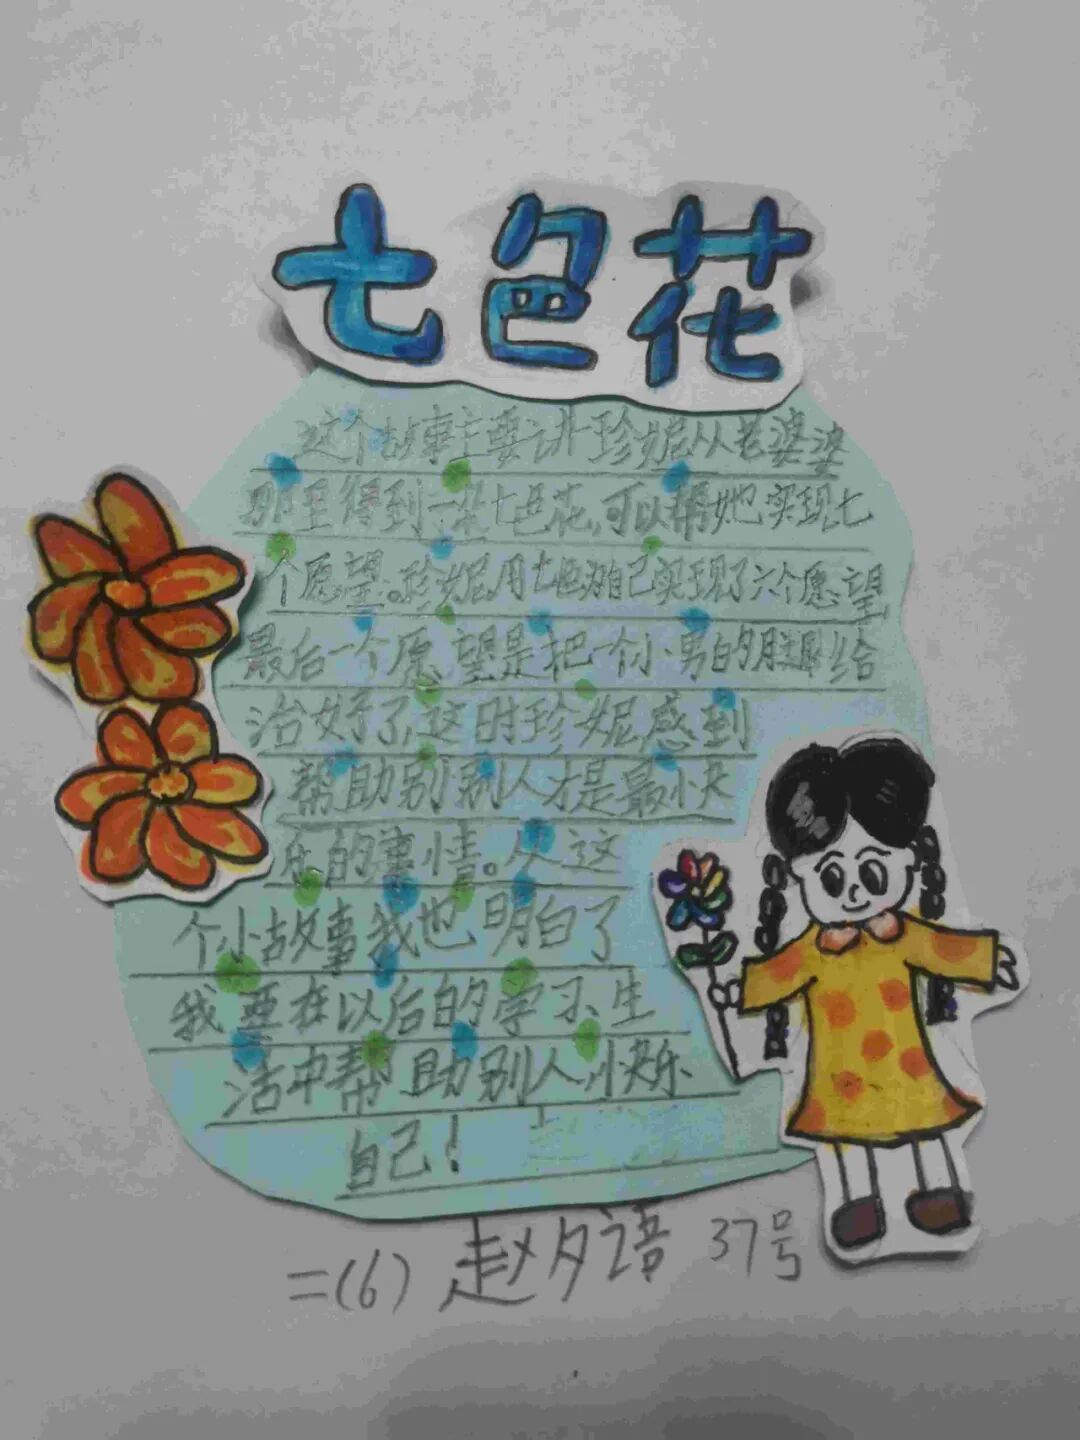 七色花
这个故事主要讲珍妮从老婆婆
那里得到一朵七色花,可以帮她实现七
个愿望。珍妮用七色为自己实现了六个愿望
最后一个愿望是把一个小男的腿给
治好了,这时珍妮感到
帮助别别人才是最快
乐的事情。从这
个小故事我也明白了
我要在以后的学习生
活中帮助别人,快乐
自己!
二(6) 赵夕语 37号